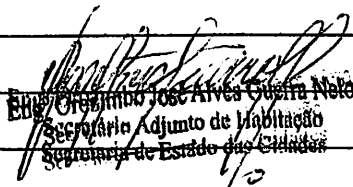 Engº Orozimbo José Alves Guerra Neto
Secretário Adjunto de Habitação
Secretaria de Estado das Cidades